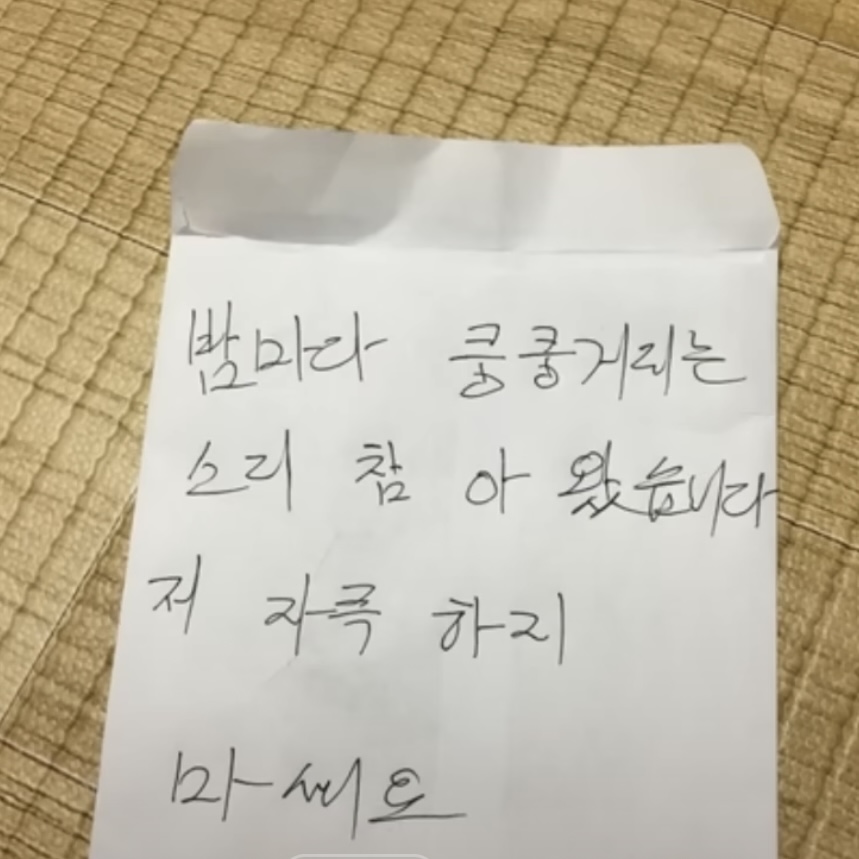 밤마다 쿵쿵거리는
소리 참 아 왔습니다
저 자극 하지
마씨요